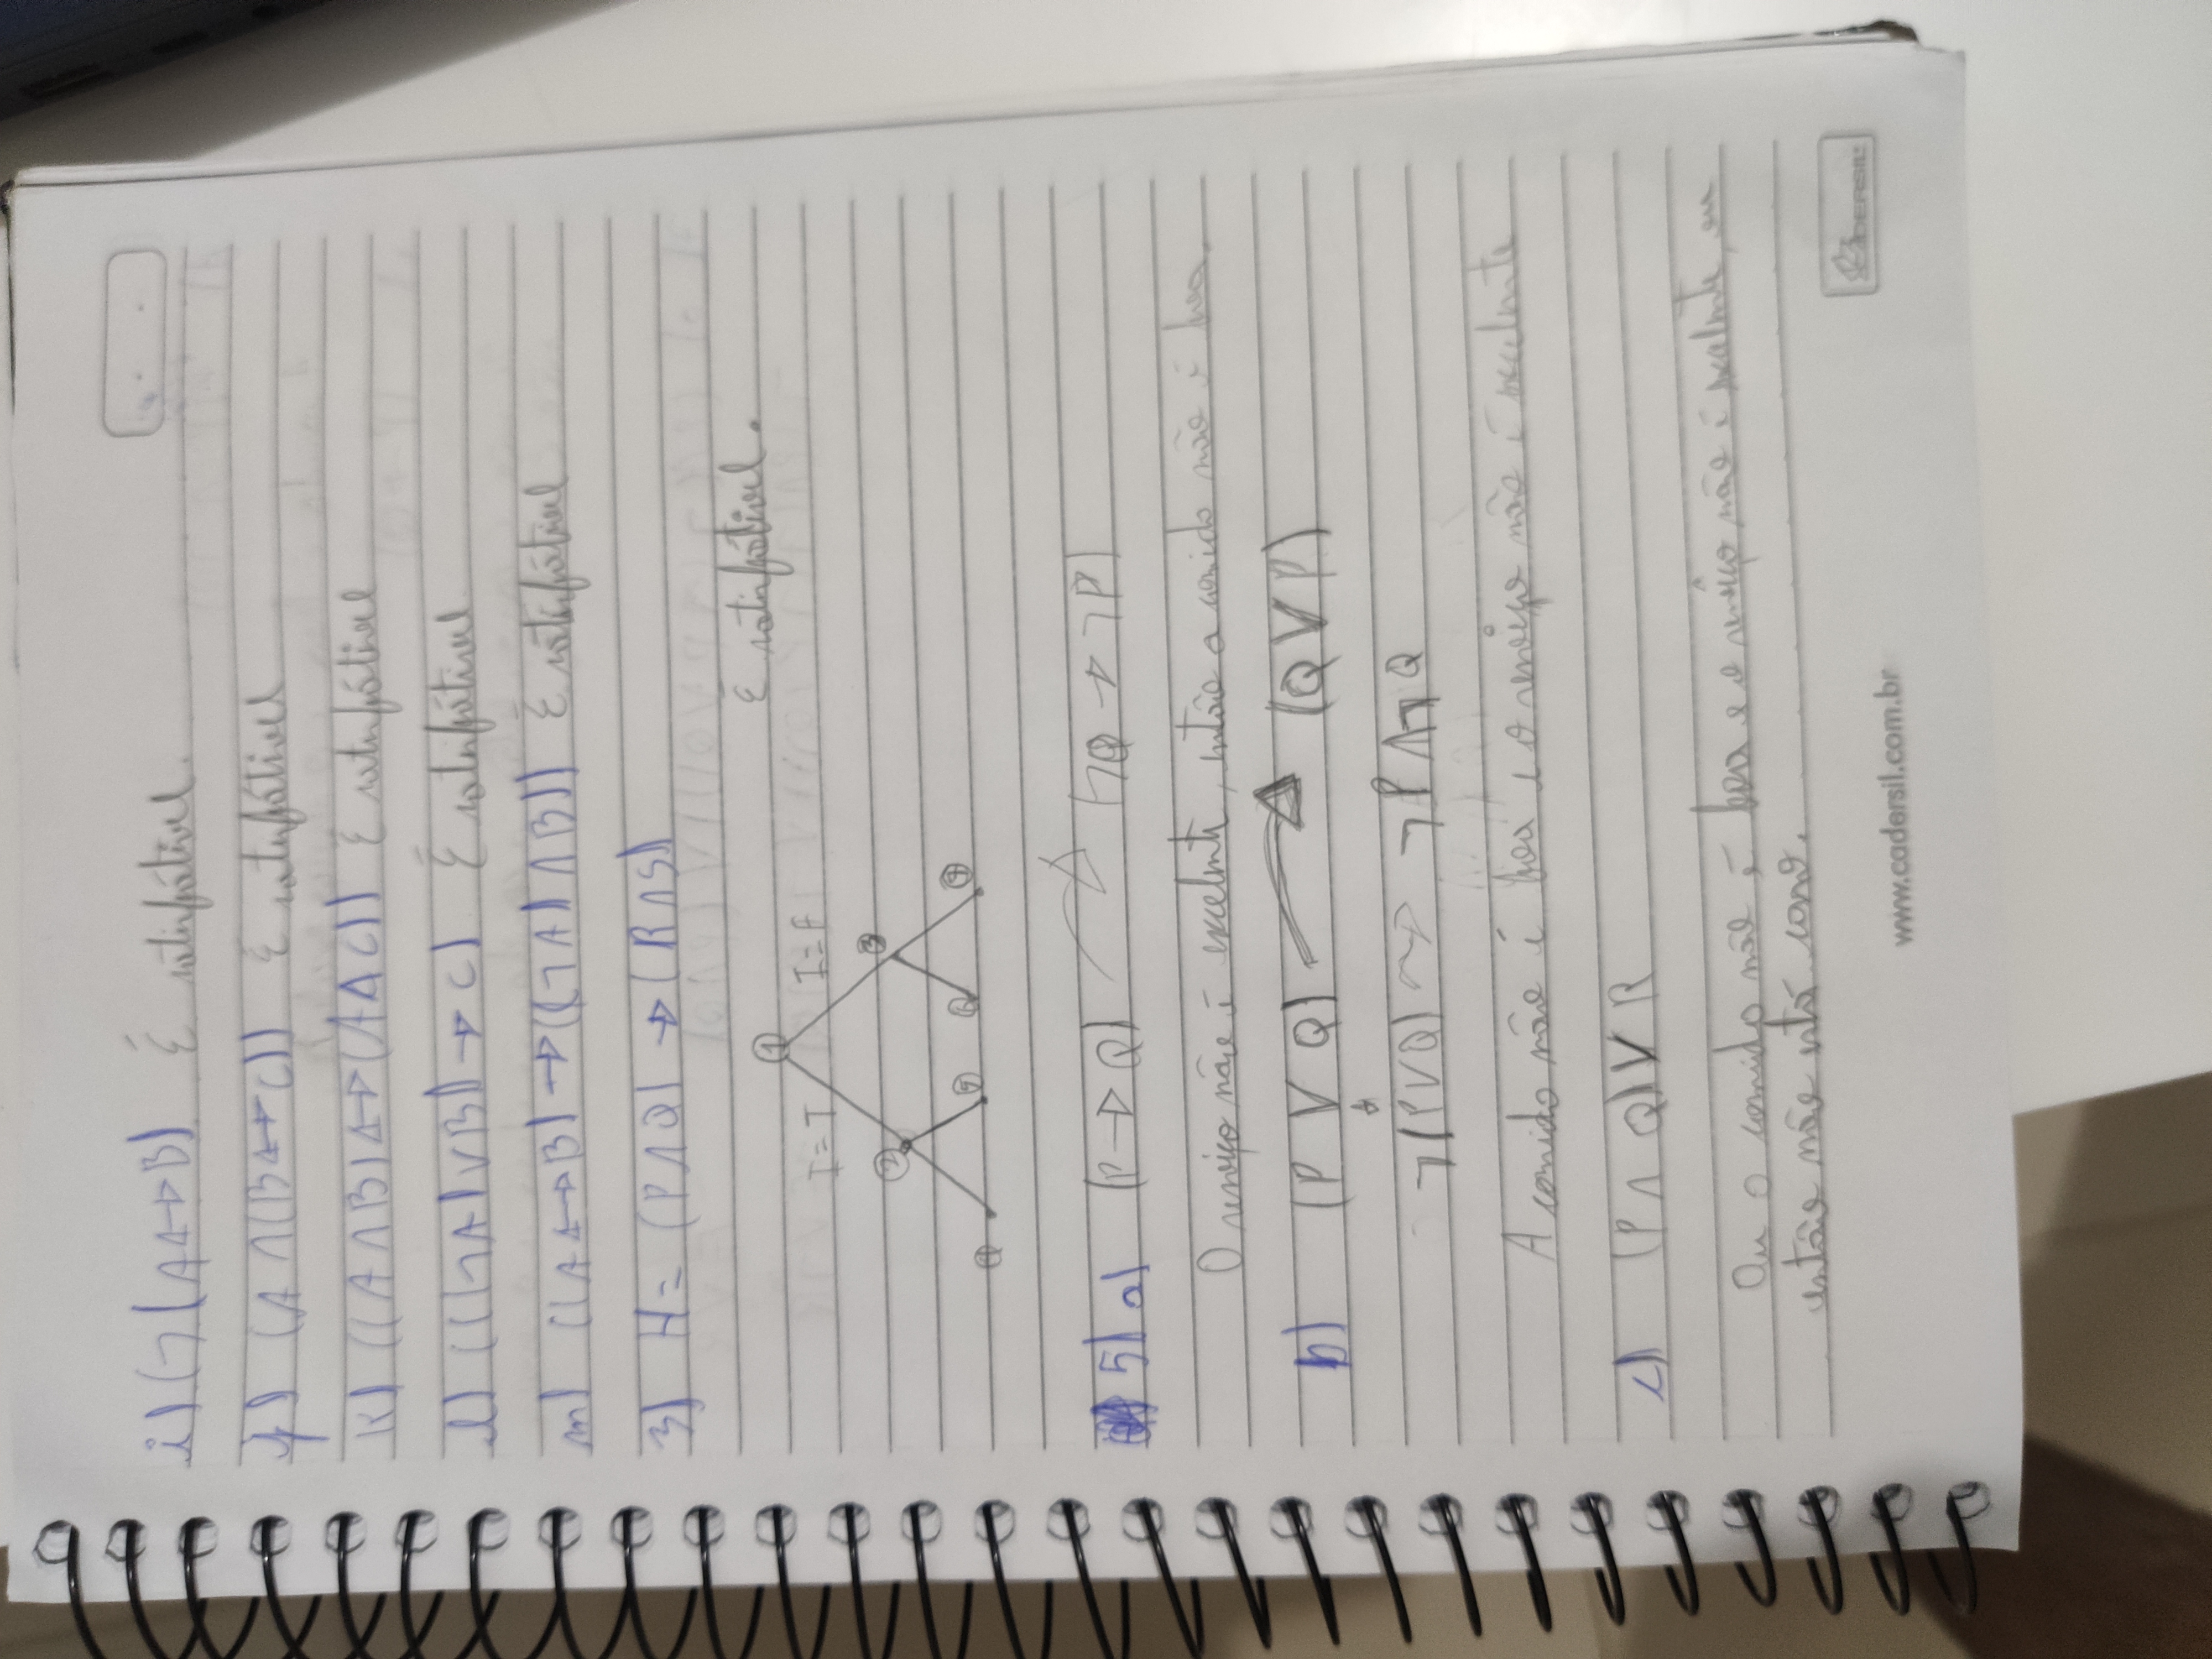 i) (¬(A↔B) É satisfátivel.
j) (A∧(B↔C)) É satisfátivel
k) ((A∧B)↔(A∧C)) É satisfátivel
l) ((¬A)∨B)→C) É satisfátivel
m) ((A↔B)→((¬A)∧B)) É satisfátivel
3) H = (P∧Q) → (R∧S)
É satisfátivel.
1
I=T I=F
2 3
4 5 6 7
5) a) (P→Q) (¬Q→¬P)
O serviço não é excelente, então a comida não é boa.
b) (P ∨ Q) (Q ∨ P)
¬(P∨Q) ¬P∧¬Q
A comida não é boa e o serviço não é excelente
c) (P ∧ Q)∨ R
Ou a comida não é boa e o serviço não é excelente, ou
então não está caro.
www.cadersil.com.br
CADERSIL